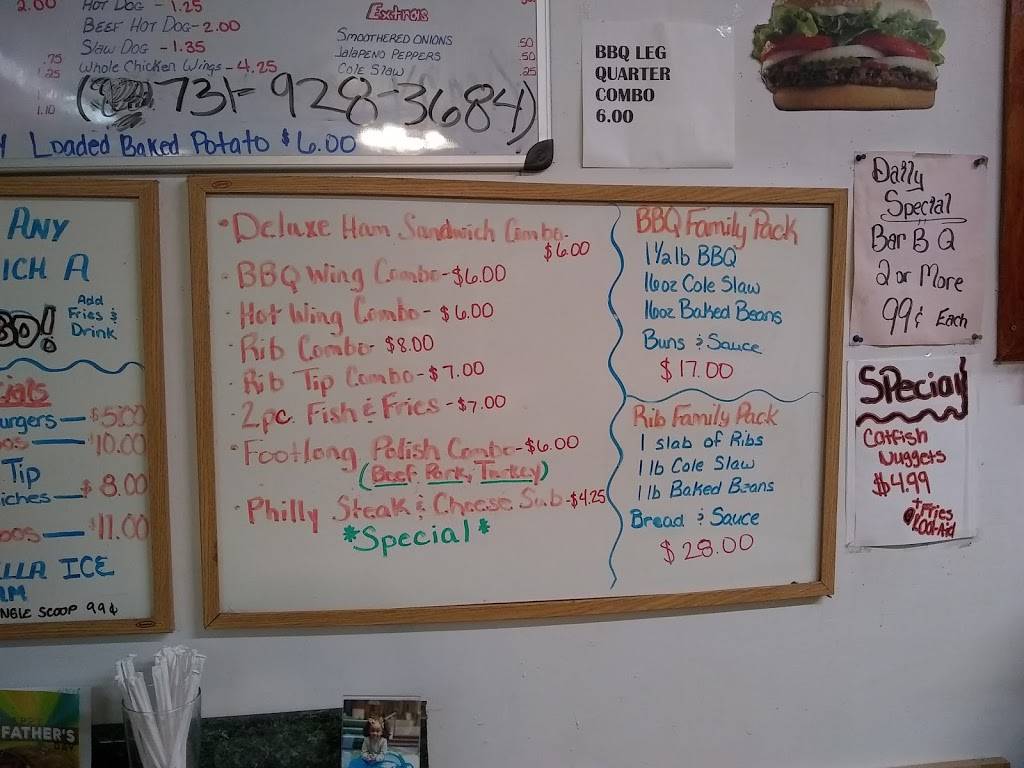 2.00
HOT DOG - 1.25
BEEF HOT DOG - 2.00
SLAW DOG - 1.35
WHOLE CHICKEN WINGS - 4.25
.75
1.25
1.10
Extras
SMOOTHERED ONIONS .50
JALAPENO PEPPERS .50
COLE SLAW .25
731-928-3684)
Loaded Baked Potato $6.00
BBQ LEG
QUARTER
COMBO
6.00
ANY
ICH A
BO!
Add
Fries &
Drink
cials
urgers — $5.00
os — $10.00
Tip
iches — $8.00
os — $11.00
LLA ICE
AM
NGLE SCOOP 99¢
• Deluxe Ham Sandwich Combo-
$6.00
• BBQ Wing Combo - $6.00
• Hot Wing Combo - $6.00
• Rib Combo - $8.00
• Rib Tip Combo - $7.00
• 2pc. Fish & Fries - $7.00
• Footlong Polish Combo - $6.00
(Beef, Pork, Turkey)
• Philly Steak & Cheese Sub - $4.25
*Special*
BBQ Family Pack
1½ lb BBQ
16oz Cole Slaw
16oz Baked Beans
Buns & Sauce
$17.00
Rib Family Pack
1 slab of Ribs
1 lb Cole Slaw
1 lb Baked Beans
Bread & Sauce
$28.00
Daily
Special
Bar B Q
2 or More
99¢ Each
SPecial
Catfish
Nuggets
$4.99
+ Fries
FATHER'S
DAY